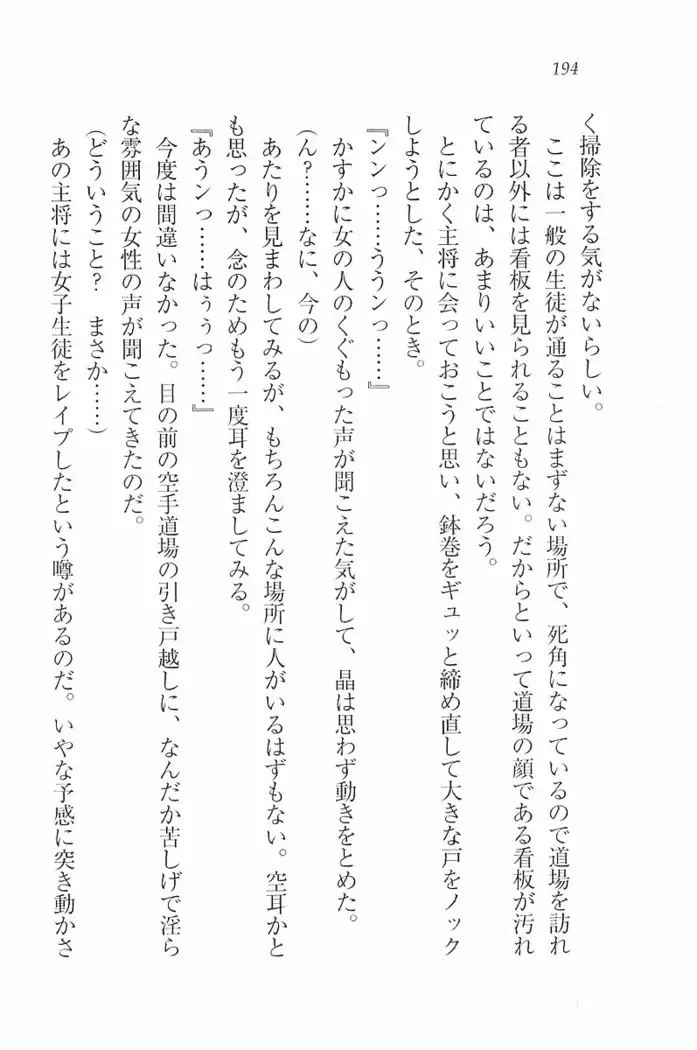 194
く掃除をする気がないらしい。
ここは一般の生徒が通ることはまずない場所で、死角になっているので道場を訪れ
る者以外には看板を見られることもない。だからといって道場の顔である看板が汚れ
ているのは、あまりいいことではないだろう。
とにかく主将に会っておこうと思い、鉢巻をギュッと締め直して大きな戸をノック
しようとした、そのとき。
『ンンっ……ううンっ……』
かすかに女の人のくぐもった声が聞こえた気がして、晶は思わず動きをとめた。
(ん?……なに、今の)
あたりを見まわしてみるが、もちろんこんな場所に人がいるはずもない。空耳かと
も思ったが、念のためもう一度耳を澄ましてみる。
『あうンっ……はぅぅっ……』
今度は間違いなかった。目の前の空手道場の引き戸越しに、なんだか苦しげで淫ら
な雰囲気の女性の声が聞こえてきたのだ。
(どういうこと? まさか……)
あの主将には女子生徒をレイプしたという噂があるのだ。いやな予感に突き動かさ